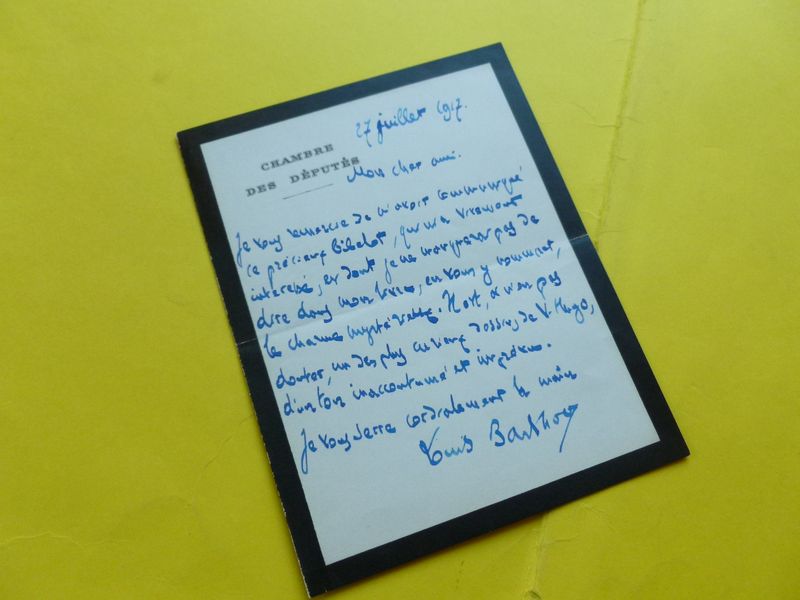 27 juillet 1917.
CHAMBRE
DES DÉPUTÉS
Mon cher ami.
Je vous remercie de m'avoir communiqué
ce précieux bibelot, qui m'a vivement
intéressé, et dont je ne manquerai pas de
dire dans mon livre, en vous y nommant,
le charme mystérieux. Il est, à n'en pas
douter, un des plus curieux dessins de V. Hugo,
d'un ton inaccoutumé et imprévu.
Je vous serre cordialement la main
Louis Barthou